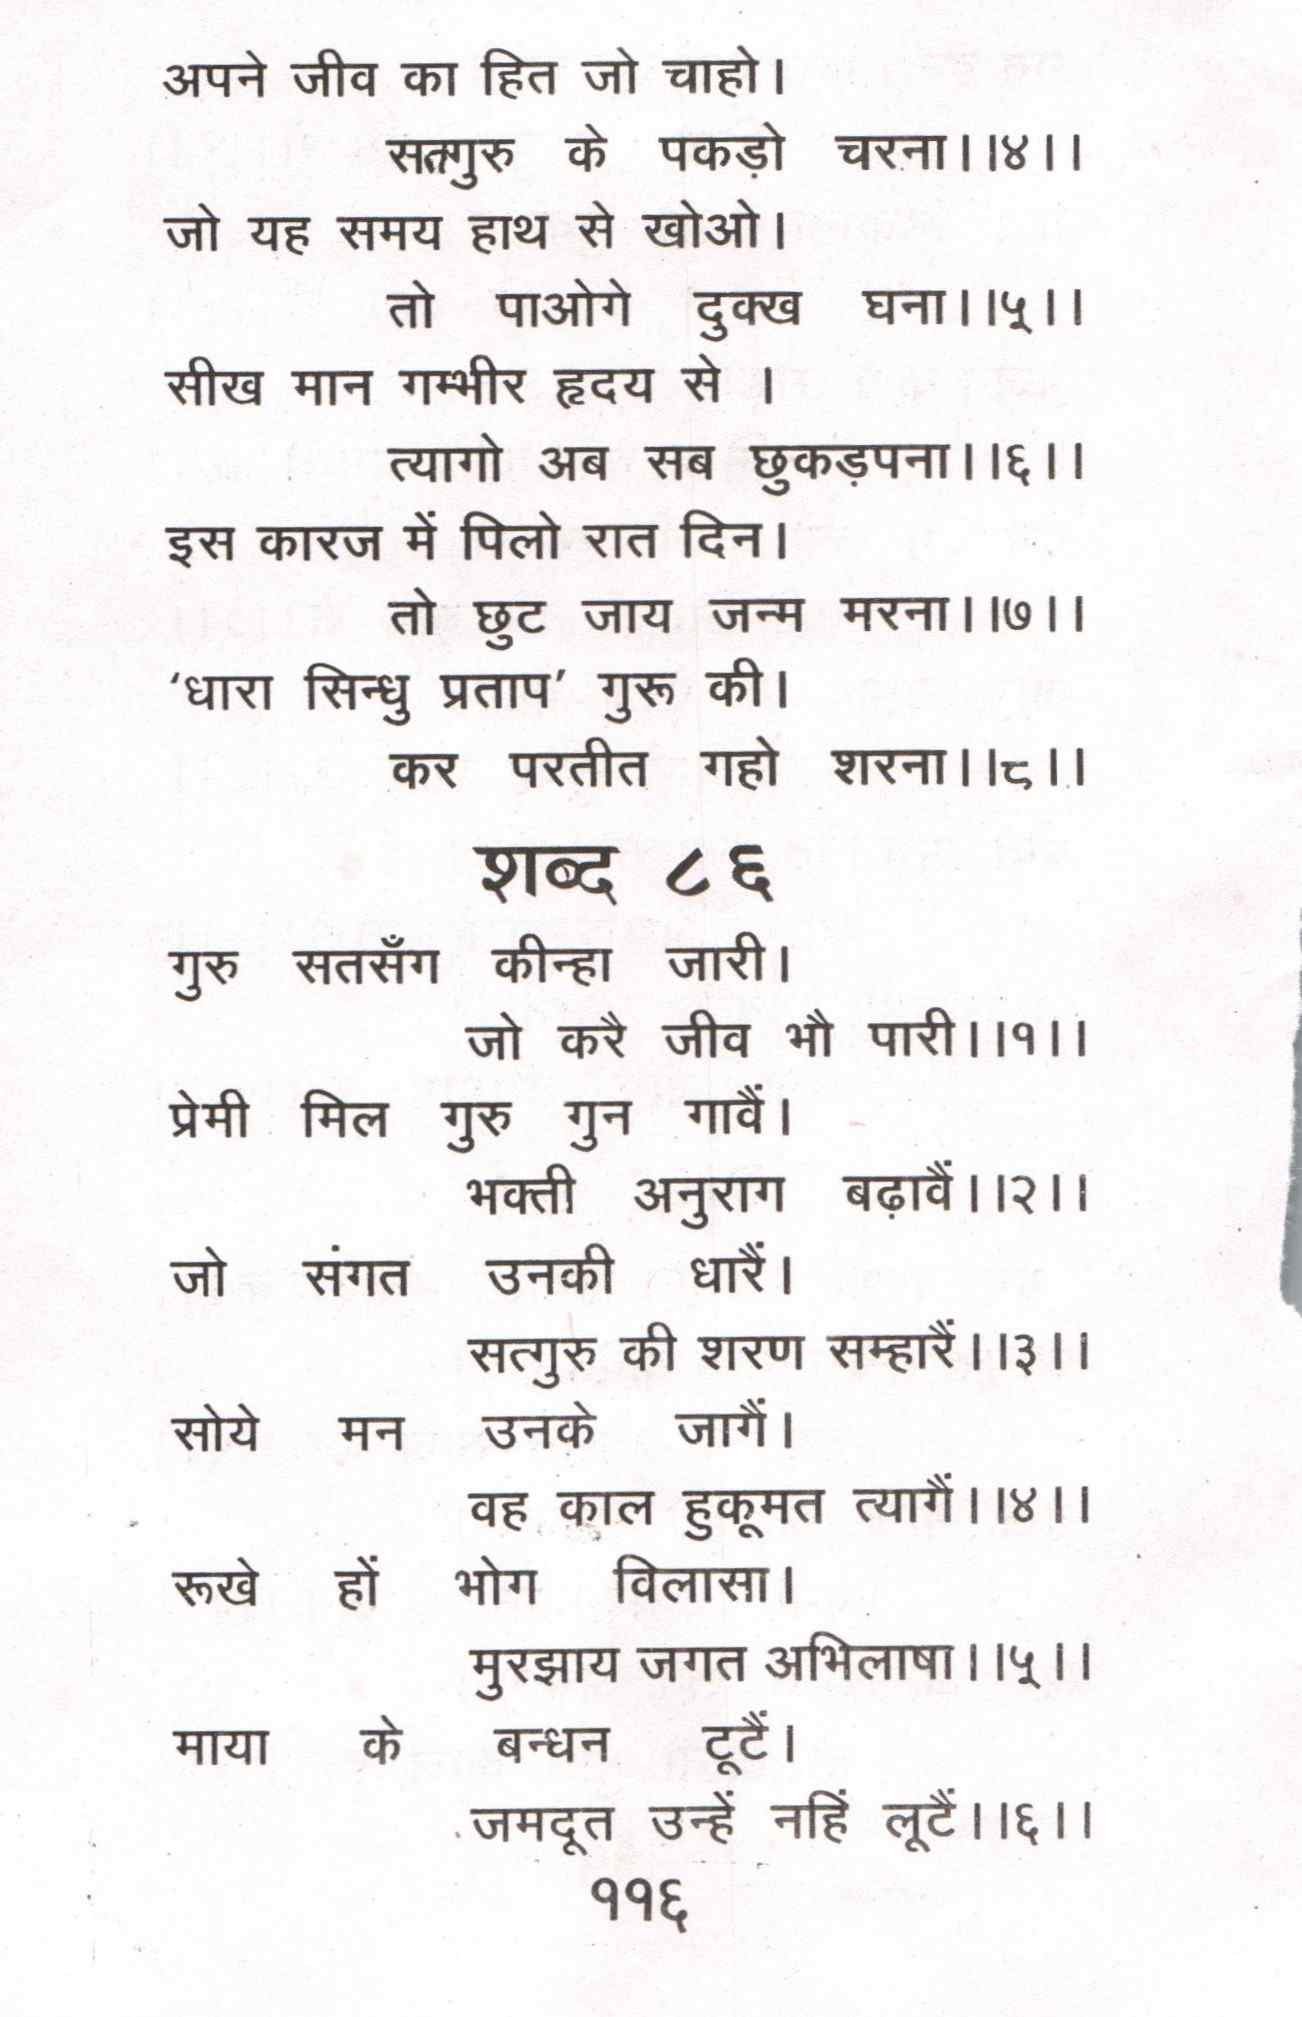 अपने जीव का हित जो चाहो।
सतगुरु के पकड़ो चरना।।४।।
जो यह समय हाथ से खोओ।
तो पाओगे दुक्ख घना।।५।।
सीख मान गम्भीर हृदय से ।
त्यागो अब सब छुकड़पना।।६।।
इस कारज में पिलो रात दिन।
तो छुट जाय जन्म मरना।।७।।
‘धारा सिन्धु प्रताप’ गुरू की।
कर परतीत गहो शरना।।८।।
शब्द ८६
गुरु सतसँग कीन्हा जारी।
जो करै जीव भौ पारी।।१।।
प्रेमी मिल गुरु गुन गावैं।
भक्ती अनुराग बढ़ावैं।।२।।
जो संगत उनकी धारैं।
सत्गुरु की शरण सम्हारैं।।३।।
सोये मन उनके जागैं।
वह काल हुकूमत त्यागैं।।४।।
रूखे हों भोग विलासा।
मुरझाय जगत अभिलाषा।।५।।
माया के बन्धन टूटैं।
जमदूत उन्हें नहिं लूटैं।।६।।
११६